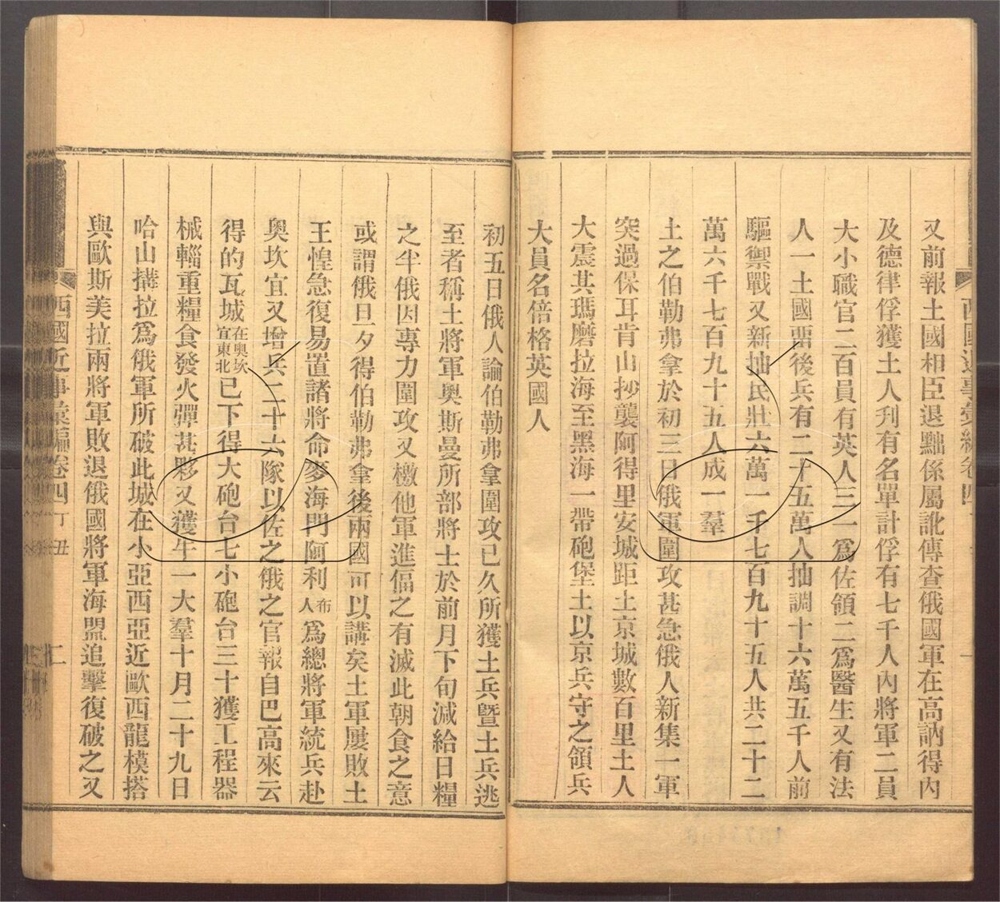 又前報土國相臣退黜係屬訛傳查俄國軍在高訥得內
及德律俘獲土人刋有名單計俘有七千人內將軍二員
大小職官二百員有英人三一為佐領二為醫生又有法
人一土國嗣後兵有二十五萬人抽調十六萬五千人前
驅禦戰又新抽民壯六萬一千七百九十五人共二十二
萬六千七百九十五人成一羣
土之伯勒弗拿於初三日俄軍圍攻甚急俄人新集一軍
突過保耳肯山抄襲阿得里安城距土京城數百里土人
大震其瑪磨拉海至黑海一帶砲堡土以京兵守之領兵
大員名倍格英國人
初五日俄人論伯勒弗拿圍攻已久所獲土兵暨土兵逃
至者稱土將軍奧斯曼所部將士於前月下旬減給日糧
之半俄因專力圍攻又檄他軍進偪之有滅此朝食之意
或謂俄旦夕得伯勒弗拿後兩國可以講矣土軍屢敗土
王惶急復易置諸將命麥海門阿利布人為總將軍統兵赴
奧坎宜又增兵二十六隊以佐之俄之官報自巴高來云
得的瓦城在奧坎宜東北已下得大砲台七小砲台三十獲工程器
械輜重糧食發火彈甚夥又獲牛一大羣十月二十九日
哈山搆拉爲俄軍所破此城在小亞西亞近歐西龍模搭
與歐斯美拉兩將軍敗退俄國將軍海盟追擊復破之又
西國近事彙編卷四
丁丑
二